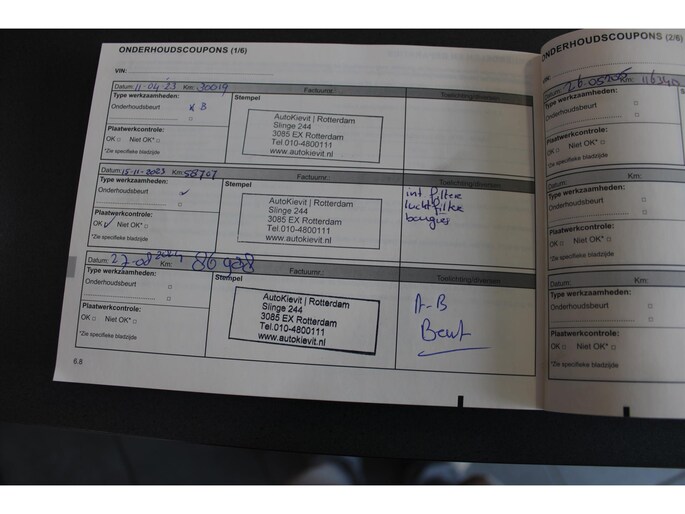 ONDERHOUDSCOUPONS (1/6)
VIN:
Datum: 11-04-'23 Km: 30019 Factuurnr.: Toelichting/diversen
Type werkzaamheden:
Onderhoudsbeurt x B
Stempel
AutoKievit | Rotterdam
Slinge 244
3085 EX Rotterdam
Tel.010-4800111
www.autokievit.nl
Plaatwerkcontrole:
OK □ Niet OK* □
*Zie specifieke bladzijde
Datum: 15-11-2023 Km: 56707 Factuurnr.: Toelichting/diversen
Type werkzaamheden:
Onderhoudsbeurt ✓
Stempel
AutoKievit | Rotterdam
Slinge 244
3085 EX Rotterdam
Tel.010-4800111
www.autokievit.nl
int filter
luchtfilter
bougies
Plaatwerkcontrole:
OK ✓ Niet OK* □
*Zie specifieke bladzijde
Datum: 27-08-2024 Km: Factuurnr.: Toelichting/diversen
Type werkzaamheden:
Onderhoudsbeurt □
Stempel
AutoKievit | Rotterdam
Slinge 244
3085 EX Rotterdam
Tel.010-4800111
www.autokievit.nl
A-B
Beurt
Plaatwerkcontrole:
OK □ Niet OK* □
*Zie specifieke bladzijde
6.8
ONDERHOUDSCOUPONS (2/6)
VIN:
Datum: Km:
Type werkzaamheden:
Onderhoudsbeurt □
Plaatwerkcontrole:
OK □ Niet OK* □
*Zie specifieke bladzijde
Datum: Km:
Type werkzaamheden:
Onderhoudsbeurt □
Plaatwerkcontrole:
OK □ Niet OK* □
*Zie specifieke bladzijde
Datum: Km:
Type werkzaamheden:
Onderhoudsbeurt □
Plaatwerkcontrole:
OK □ Niet OK* □
*Zie specifieke bladzijde